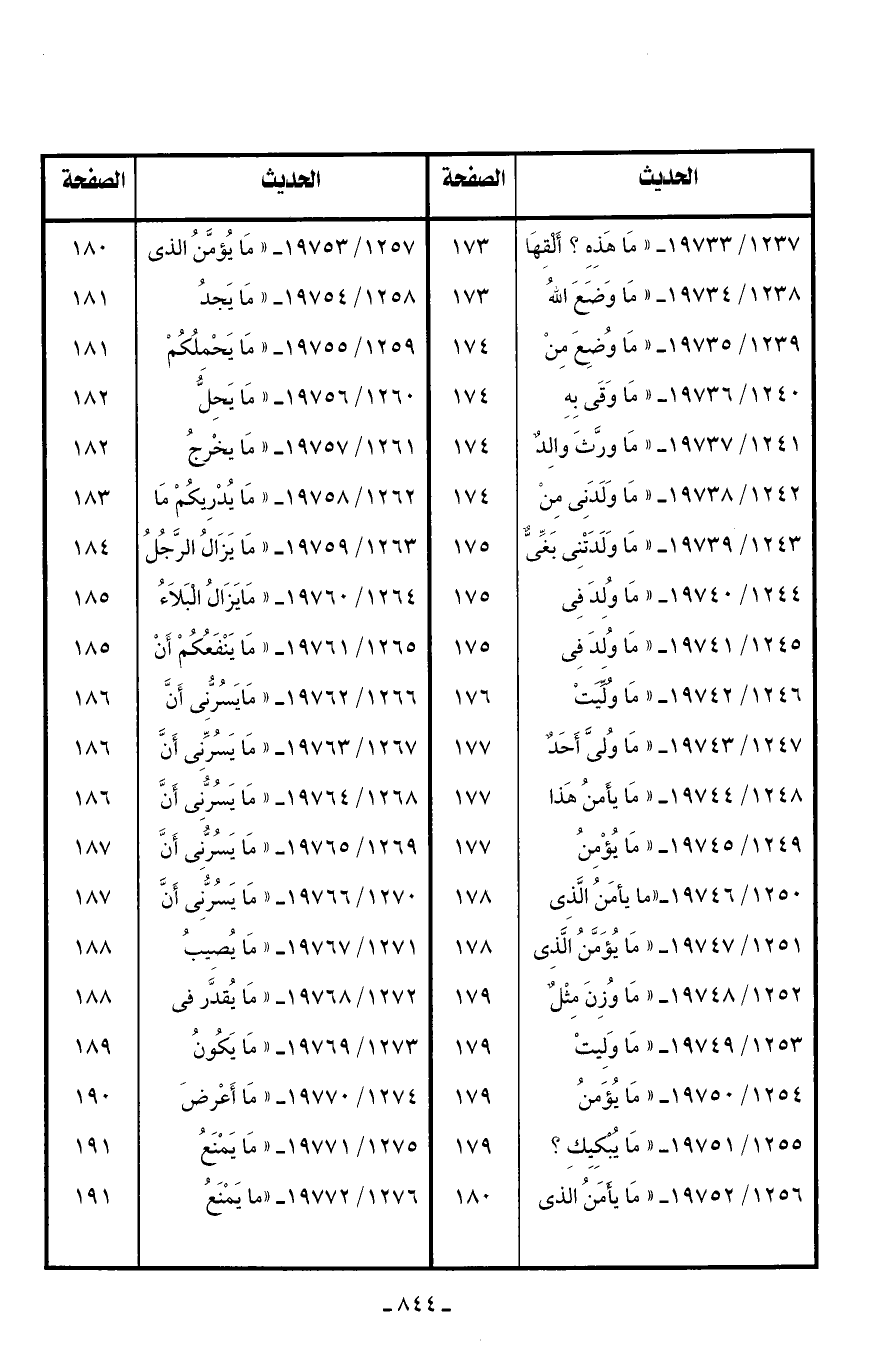 الحديث الصفحة الحديث الصفحة
١٢٣٧/ ١٩٧٣٣ـ « مَا هَذِهِ ؟ أَلْقِهَا ١٧٣ ١٢٥٧/ ١٩٧٥٣ـ « مَا يُؤمَّنُ الذى ١٨٠
١٢٣٨/ ١٩٧٣٤ـ « مَا وَضَعَ اللهُ ١٧٣ ١٢٥٨/ ١٩٧٥٤ـ « مَا يَجِدُ ١٨١
١٢٣٩/ ١٩٧٣٥ـ « مَا وُضِعَ مِنْ ١٧٤ ١٢٥٩/ ١٩٧٥٥ـ « مَا يَحْمِلُكُمْ ١٨١
١٢٤٠/ ١٩٧٣٦ـ « مَا وَقَى بِهِ ١٧٤ ١٢٦٠/ ١٩٧٥٦ـ « مَا يَحِلُّ ١٨٢
١٢٤١/ ١٩٧٣٧ـ « مَا ورَّثَ والِدٌ ١٧٤ ١٢٦١/ ١٩٧٥٧ـ « مَا يخْرِجُ ١٨٢
١٢٤٢/ ١٩٧٣٨ـ « مَا وَلَدَنِى مِنْ ١٧٤ ١٢٦٢/ ١٩٧٥٨ـ « مَا يُدْرِيكُمْ مَا ١٨٣
١٢٤٣/ ١٩٧٣٩ـ « مَا وَلَدَتْنِى بَغِىٌّ ١٧٥ ١٢٦٣/ ١٩٧٥٩ـ « مَا يَزَالُ الرَّجُلُ ١٨٤
١٢٤٤/ ١٩٧٤٠ـ « مَا وُلِدَ فِى ١٧٥ ١٢٦٤/ ١٩٧٦٠ـ « مَايَزَالُ الْبَلاَءُ ١٨٥
١٢٤٥/ ١٩٧٤١ـ « مَا وُلِدَ فِى ١٧٥ ١٢٦٥/ ١٩٧٦١ـ « مَا يَنْفَعُكُمْ أَنْ ١٨٥
١٢٤٦/ ١٩٧٤٢ـ « مَا وُلِّيَتْ ١٧٦ ١٢٦٦/ ١٩٧٦٢ـ « مَايَسُرُّنِى أَنَّ ١٨٦
١٢٤٧/ ١٩٧٤٣ـ « مَا وُلِىَّ أَحَدٌ ١٧٧ ١٢٦٧/ ١٩٧٦٣ـ « مَا يَسُرِّنِى أَنَّ ١٨٦
١٢٤٨/ ١٩٧٤٤ـ « مَا يأَمِنُ هَذا ١٧٧ ١٢٦٨/ ١٩٧٦٤ـ « مَا يَسُرُّنِى أَنَّ ١٨٦
١٢٤٩/ ١٩٧٤٥ـ « مَا يُؤْمِنُ ١٧٧ ١٢٦٩/ ١٩٧٦٥ـ « مَا يَسُرُّنِى أَنَّ ١٨٧
١٢٥٠/ ١٩٧٤٦ـ «ما يأمَنُ الَّذِى ١٧٨ ١٢٧٠/ ١٩٧٦٦ـ « مَا يَسُرُّنِى أَنَّ ١٨٧
١٢٥١/ ١٩٧٤٧ـ « مَا يُؤَمَّنُ الَّذِى ١٧٨ ١٢٧١/ ١٩٧٦٧ـ « مَا يُصِيبُ ١٨٨
١٢٥٢/ ١٩٧٤٨ـ « مَا وُزِنَ مِثْلٌ ١٧٩ ١٢٧٢/ ١٩٧٦٨ـ « مَا يُقدَّر فى ١٨٨
١٢٥٣/ ١٩٧٤٩ـ « مَا وَلِيتْ ١٧٩ ١٢٧٣/ ١٩٧٦٩ـ « مَا يَكُونُ ١٨٩
١٢٥٤/ ١٩٧٥٠ـ « مَا يُؤَمِنُ ١٧٩ ١٢٧٤/ ١٩٧٧٠ـ « مَا أَعْرضَ ١٩٠
١٢٥٥/ ١٩٧٥١ـ « مَا يُبْكِيكِ ؟ ١٧٩ ١٢٧٥/ ١٩٧٧١ـ « مَا يَمْنَعُ ١٩١
١٢٥٦/ ١٩٧٥٢ـ « مَا يأَمَنُ الذى ١٨٠ ١٢٧٦/ ١٩٧٧٢ـ «ما يَمْنَعُ ١٩١
ـ ٨٤٤ ـ